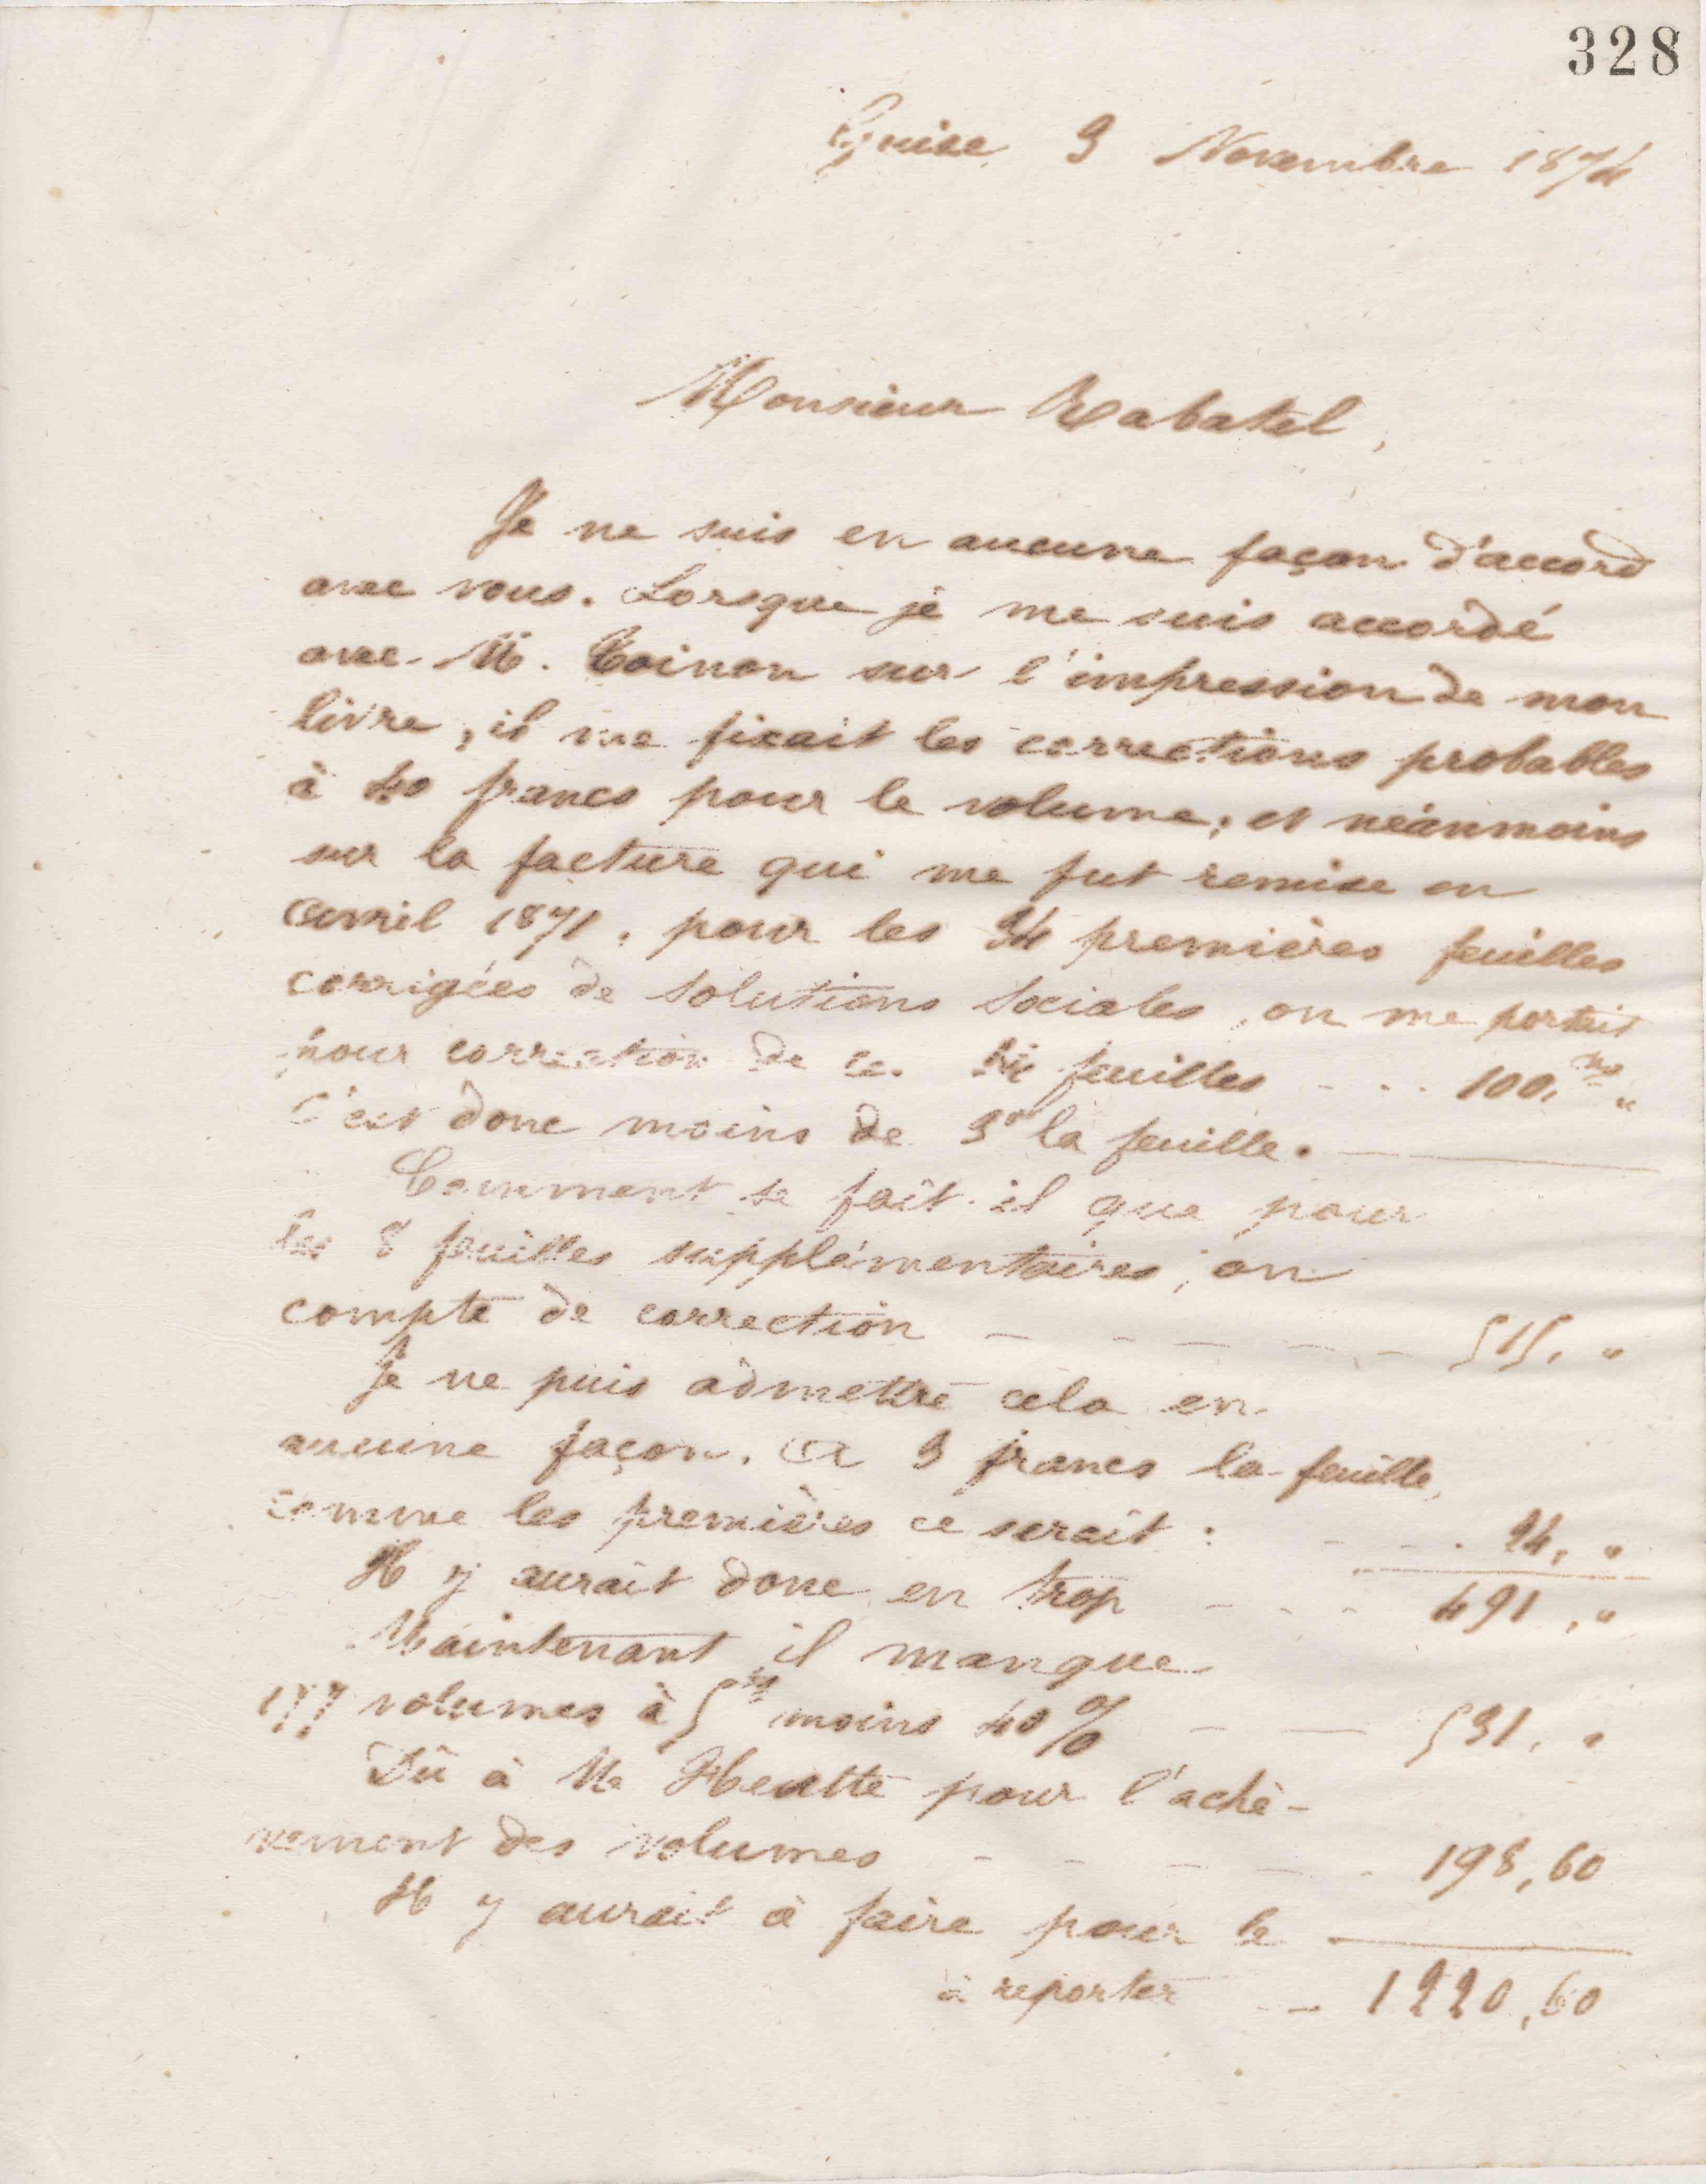 328
Guise 3 Novembre 1874
Monsieur Rabatel,
Je ne suis en aucune façon d'accord
avec vous. Lorsque je me suis accordé
avec M. Toinon sur l'impression de mon
livre, il me fixait les corrections probables
à 40 francs pour le volume; et néanmoins
sur la facture qui me fut remise en
Avril 1871. pour les 34 premières feuilles
corrigées de Solutions Sociales, on me portait
pour correction de ce. 34 feuilles - - - 100, "
C'est donc moins de 3 la feuille.
Comment se fait-il que pour
les 8 feuilles supplémentaires, on
compte de correction - - - - - 515, "
Je ne puis admettre cela en
aucune façon. A 3 francs la feuille,
comme les premières ce serait : - - - 24, "
Il y aurait donc en trop - - - 491, "
Maintenant il manque
177 volumes à 5 moins 40 % - - 531, "
Dû à M. pour l'achè-
vement des volumes - - - - - 198,60
Il y aurait à faire pour le
à reporter - - 1220,60